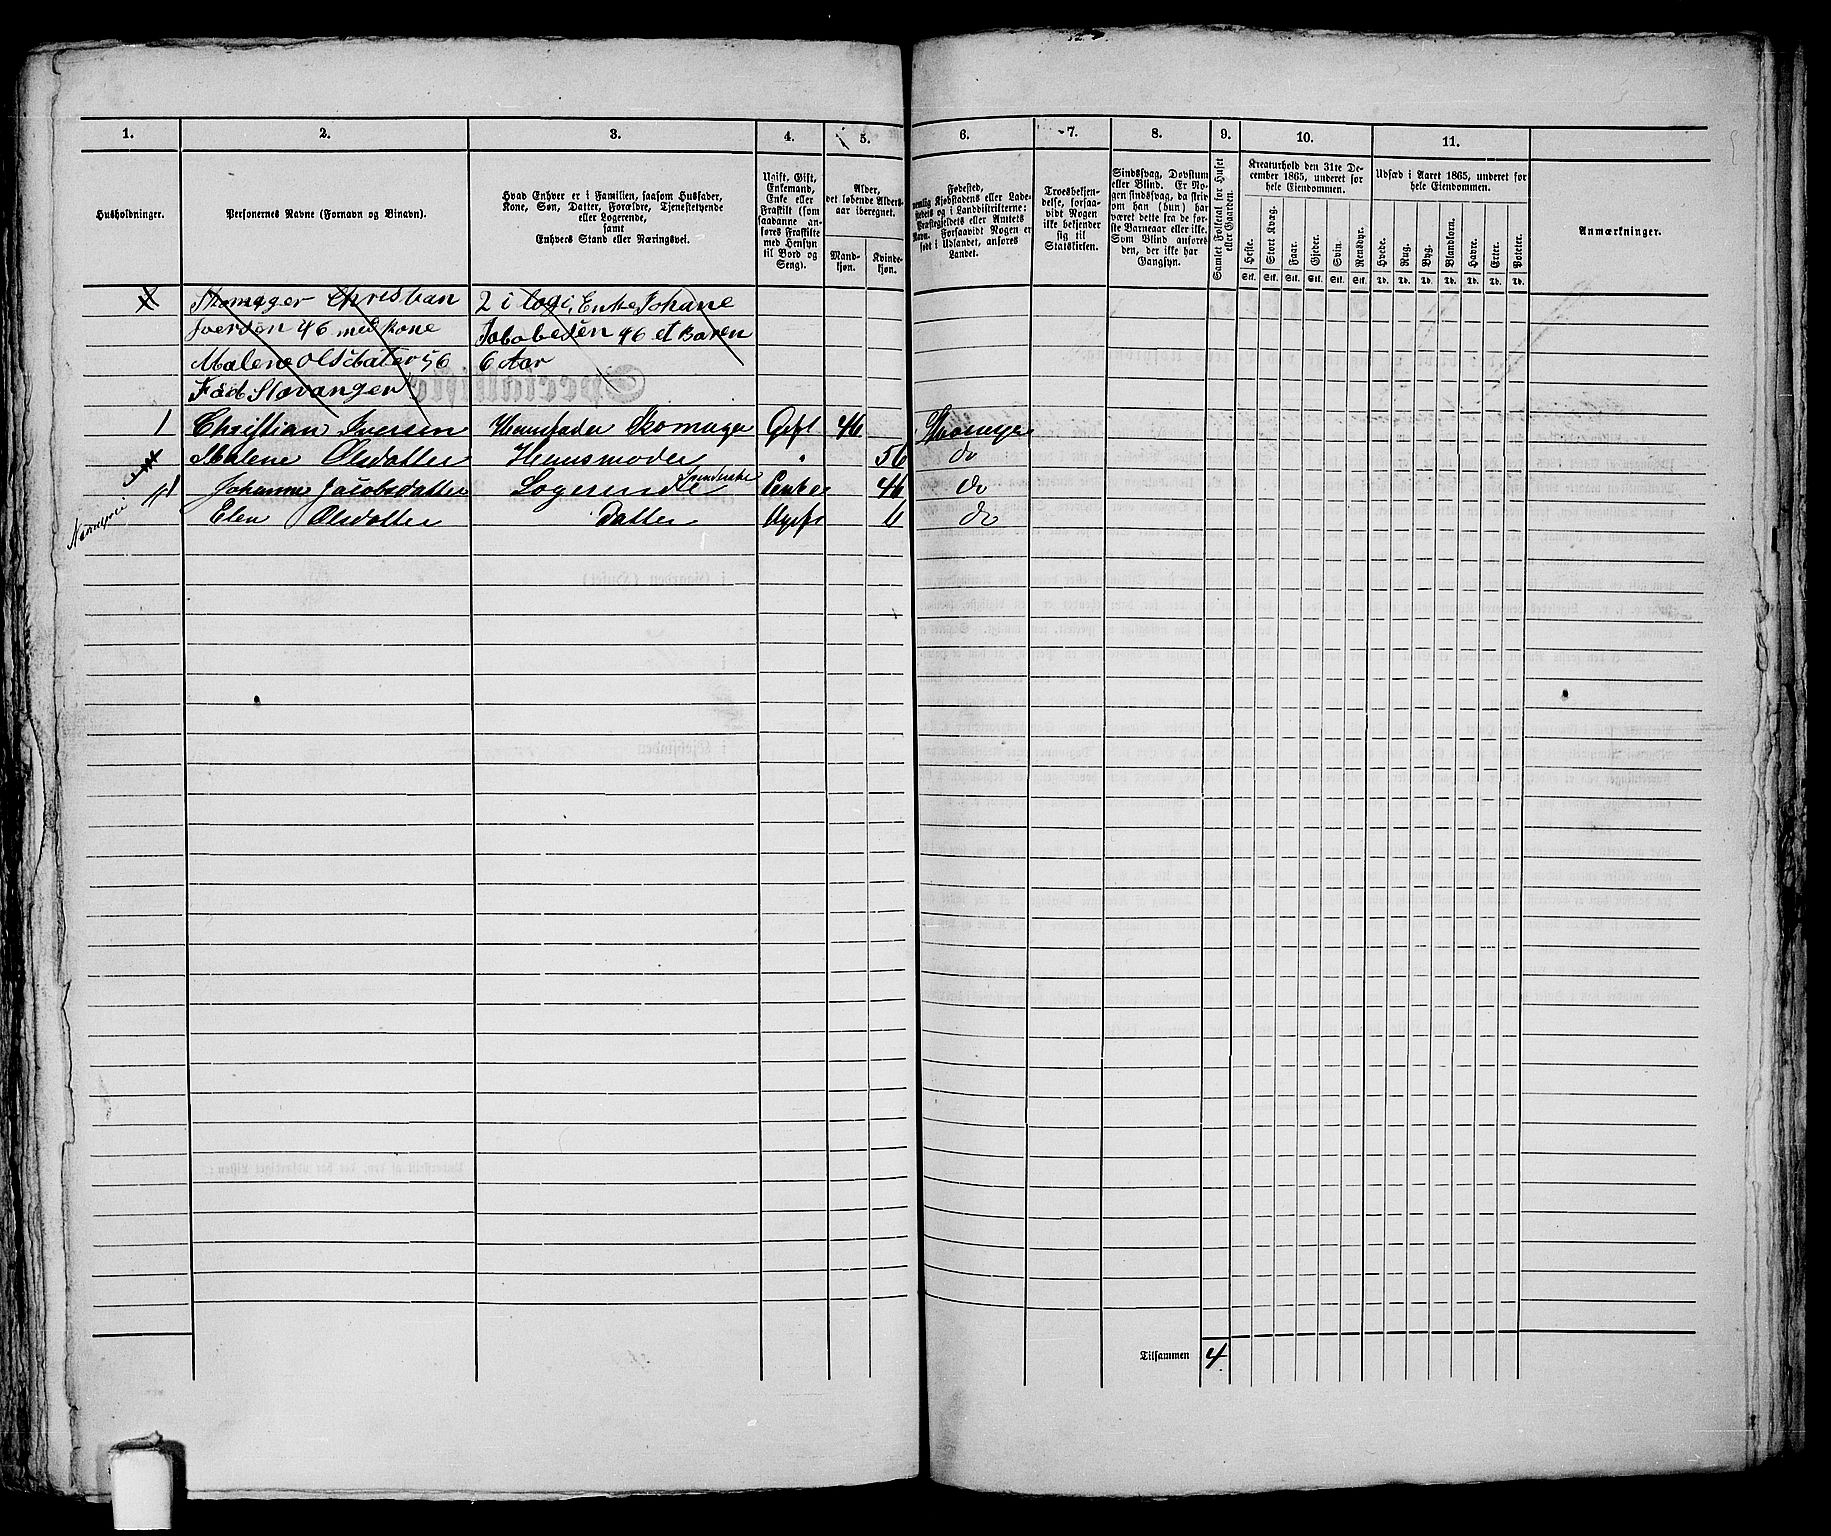 1. 2. 3. 4. 5. 6. 7. 8. 9. 10. 11.
Husholdninger.
Personernes Navne (Fornavn og Vinavn).
Hvad Enhver er i Familien, saasom Husfader,
Kone, Søn, Datter, Forældre, Tjenestetyende
eller Logerende,
samt
Enhvers Stand eller Næringsvei.
Ugift, Gift,
Enkemand,
Enke eller
Fraskilt (som
saadanne an-
føres Fraskilte
med Hensyn
til Bord og
Seng).
Alder,
det løbende Alders-
aar iberegnet.
Mand-
kjøn.
Kvinde-
kjøn.
Fødested,
nemlig Kjøbstadens eller Lade-
stedets og i Landdistrikterne:
Præstegjeldets eller Amtets
Navn. Forsaavidt Nogen er
født i Udlandet, anføres
Landet.
Troesbekjen-
delse, forsaa-
vidt Nogen
ikke bekjender
sig til
Statskirken.
Sindssvag, Døvstum
eller Blind. Er No-
gen sindssvag, da skri-
ves om han (hun) har
været dette fra de for-
ste Barneaar eller ikke.
Som Blind anføres
den, der ikke har
Gangsyn.
Samlet Folketal for Huset
eller Gaarden.
Kreaturhold den 31te De-
cember 1865, underet for
hele Eiendommen.
Heste. Stort Kvæg. Faar. Gjeder. Svin. Rensdyr.
Stk. Stk. Stk. Stk. Stk. Stk.
Udsæd i Aaret 1865, underet for
hele Eiendommen.
Hvede. Rug. Byg. Blandkorn. Havre. Erter. Poteter.
Td. Td. Td. Td. Td. Td. Td.
Anmærkninger.
Skomager Christian 2 i logi, Enke Johane
Iversen 46 med kone Jabobesen 46 et Baren
Malene Olsdater 56 6 Aar
Fød Stavanger
1 Christian Iversen Huusfader Skomager Gift 46
Malene Olsdatter Huusmoder " 56 do
Johanne Jacobsdatter Logerende Enke 46 do
Elen Olsdatter Datter Ugift 6 do
Tilsammen 4